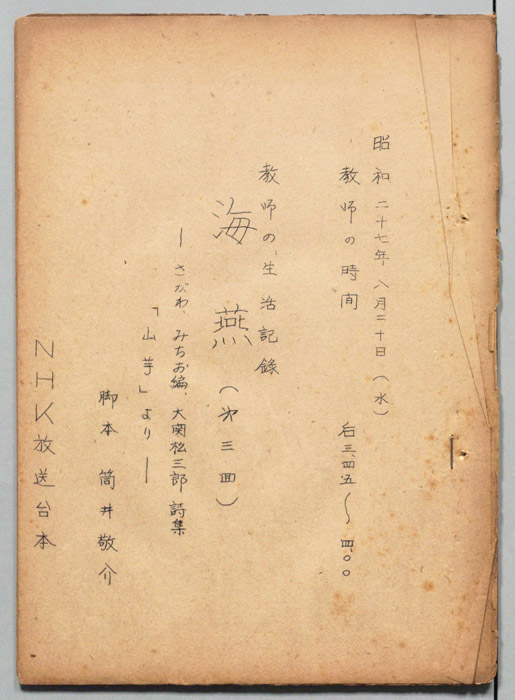 昭和二十七年八月二十日(水)
教師の時間 后三.四五〜四.〇〇
教師の生活記録
海燕(㐧三回)
―さがわ、みちお編、大関松三郎詩集
「山芋」より―
脚本 筒井敬介
NHK放送台本